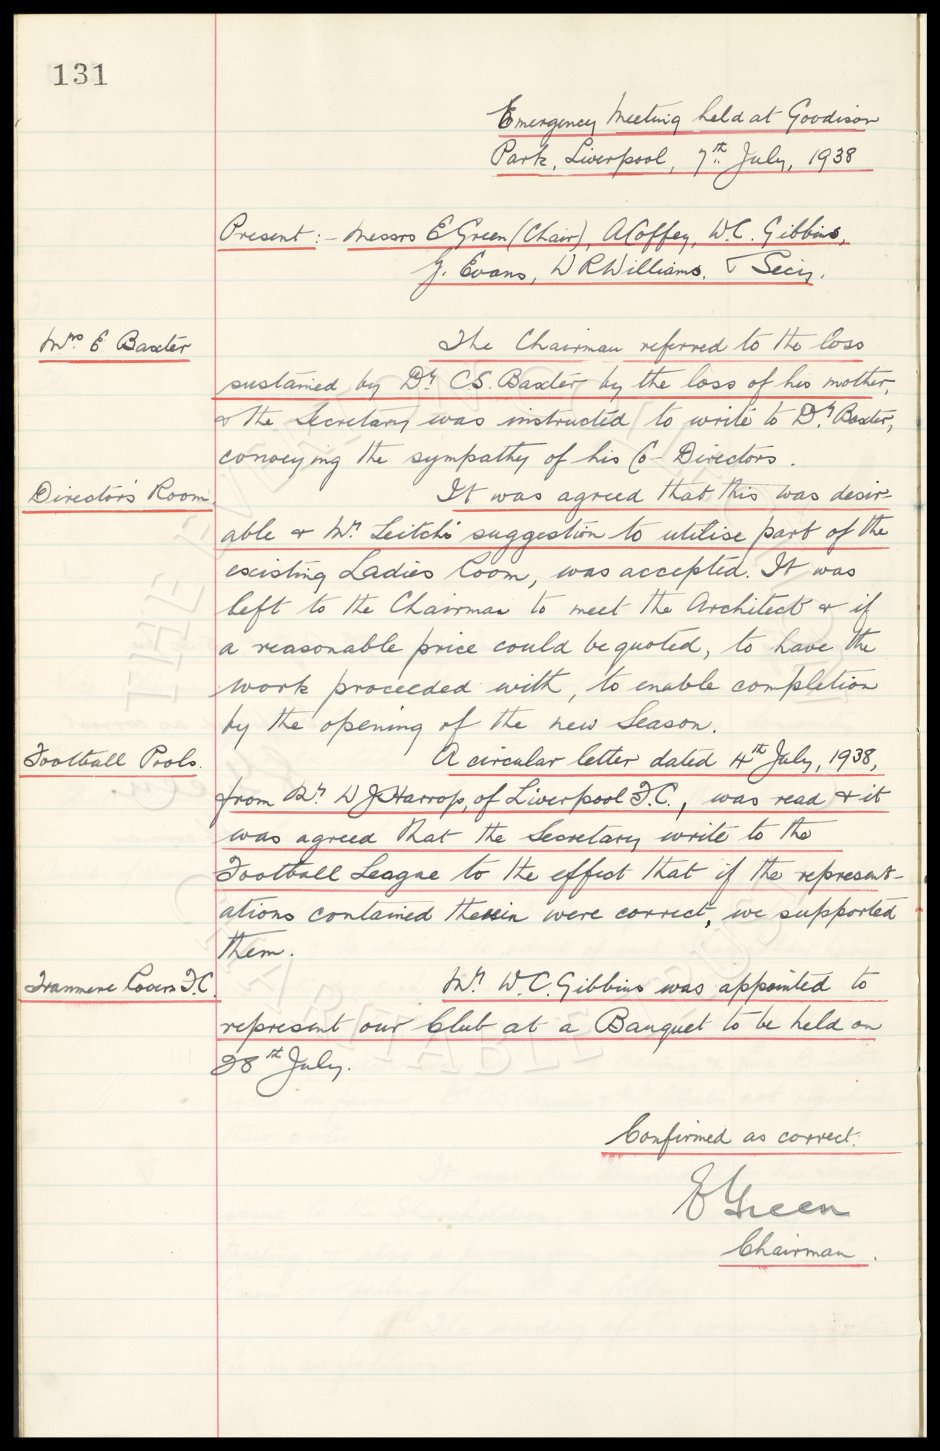 131
Emergency Meeting held at Goodison
Park, Liverpool, 7th July, 1938
Present:- Messrs E Green (Chair), A Coffey, W.C. Gibbins,
G. Evans, W R Williams, & Secy.
Mrs E Baxter
The Chairman referred to the loss
sustained by Dr C.S. Baxter, by the loss of his mother,
& the Secretary was instructed to write to Dr Baxter,
conveying the sympathy of his Co-Directors.
Director's Room.
It was agreed that this was desir-
able & Mr Leitch's suggestion to utilise part of the
existing Ladies Room, was accepted. It was
left to the Chairman to meet the Architect & if
a reasonable price could be quoted, to have the
work proceeded with, to enable completion
by the opening of the new Season.
Football Pools.
A circular letter dated 4th July, 1938,
from Mr W J Harrop, of Liverpool F.C., was read & it
was agreed that the Secretary write to the
Football League to the effect that if the represent-
ations contained therein were correct, we supported
them.
Tranmere Rovers F.C.
Mr W.C. Gibbins was appointed to
represent our Club at a Banquet to be held on
28th July.
Confirmed as correct.
E Green
Chairman.
THE EVERTON COLLECTION
CHARITABLE TRUST